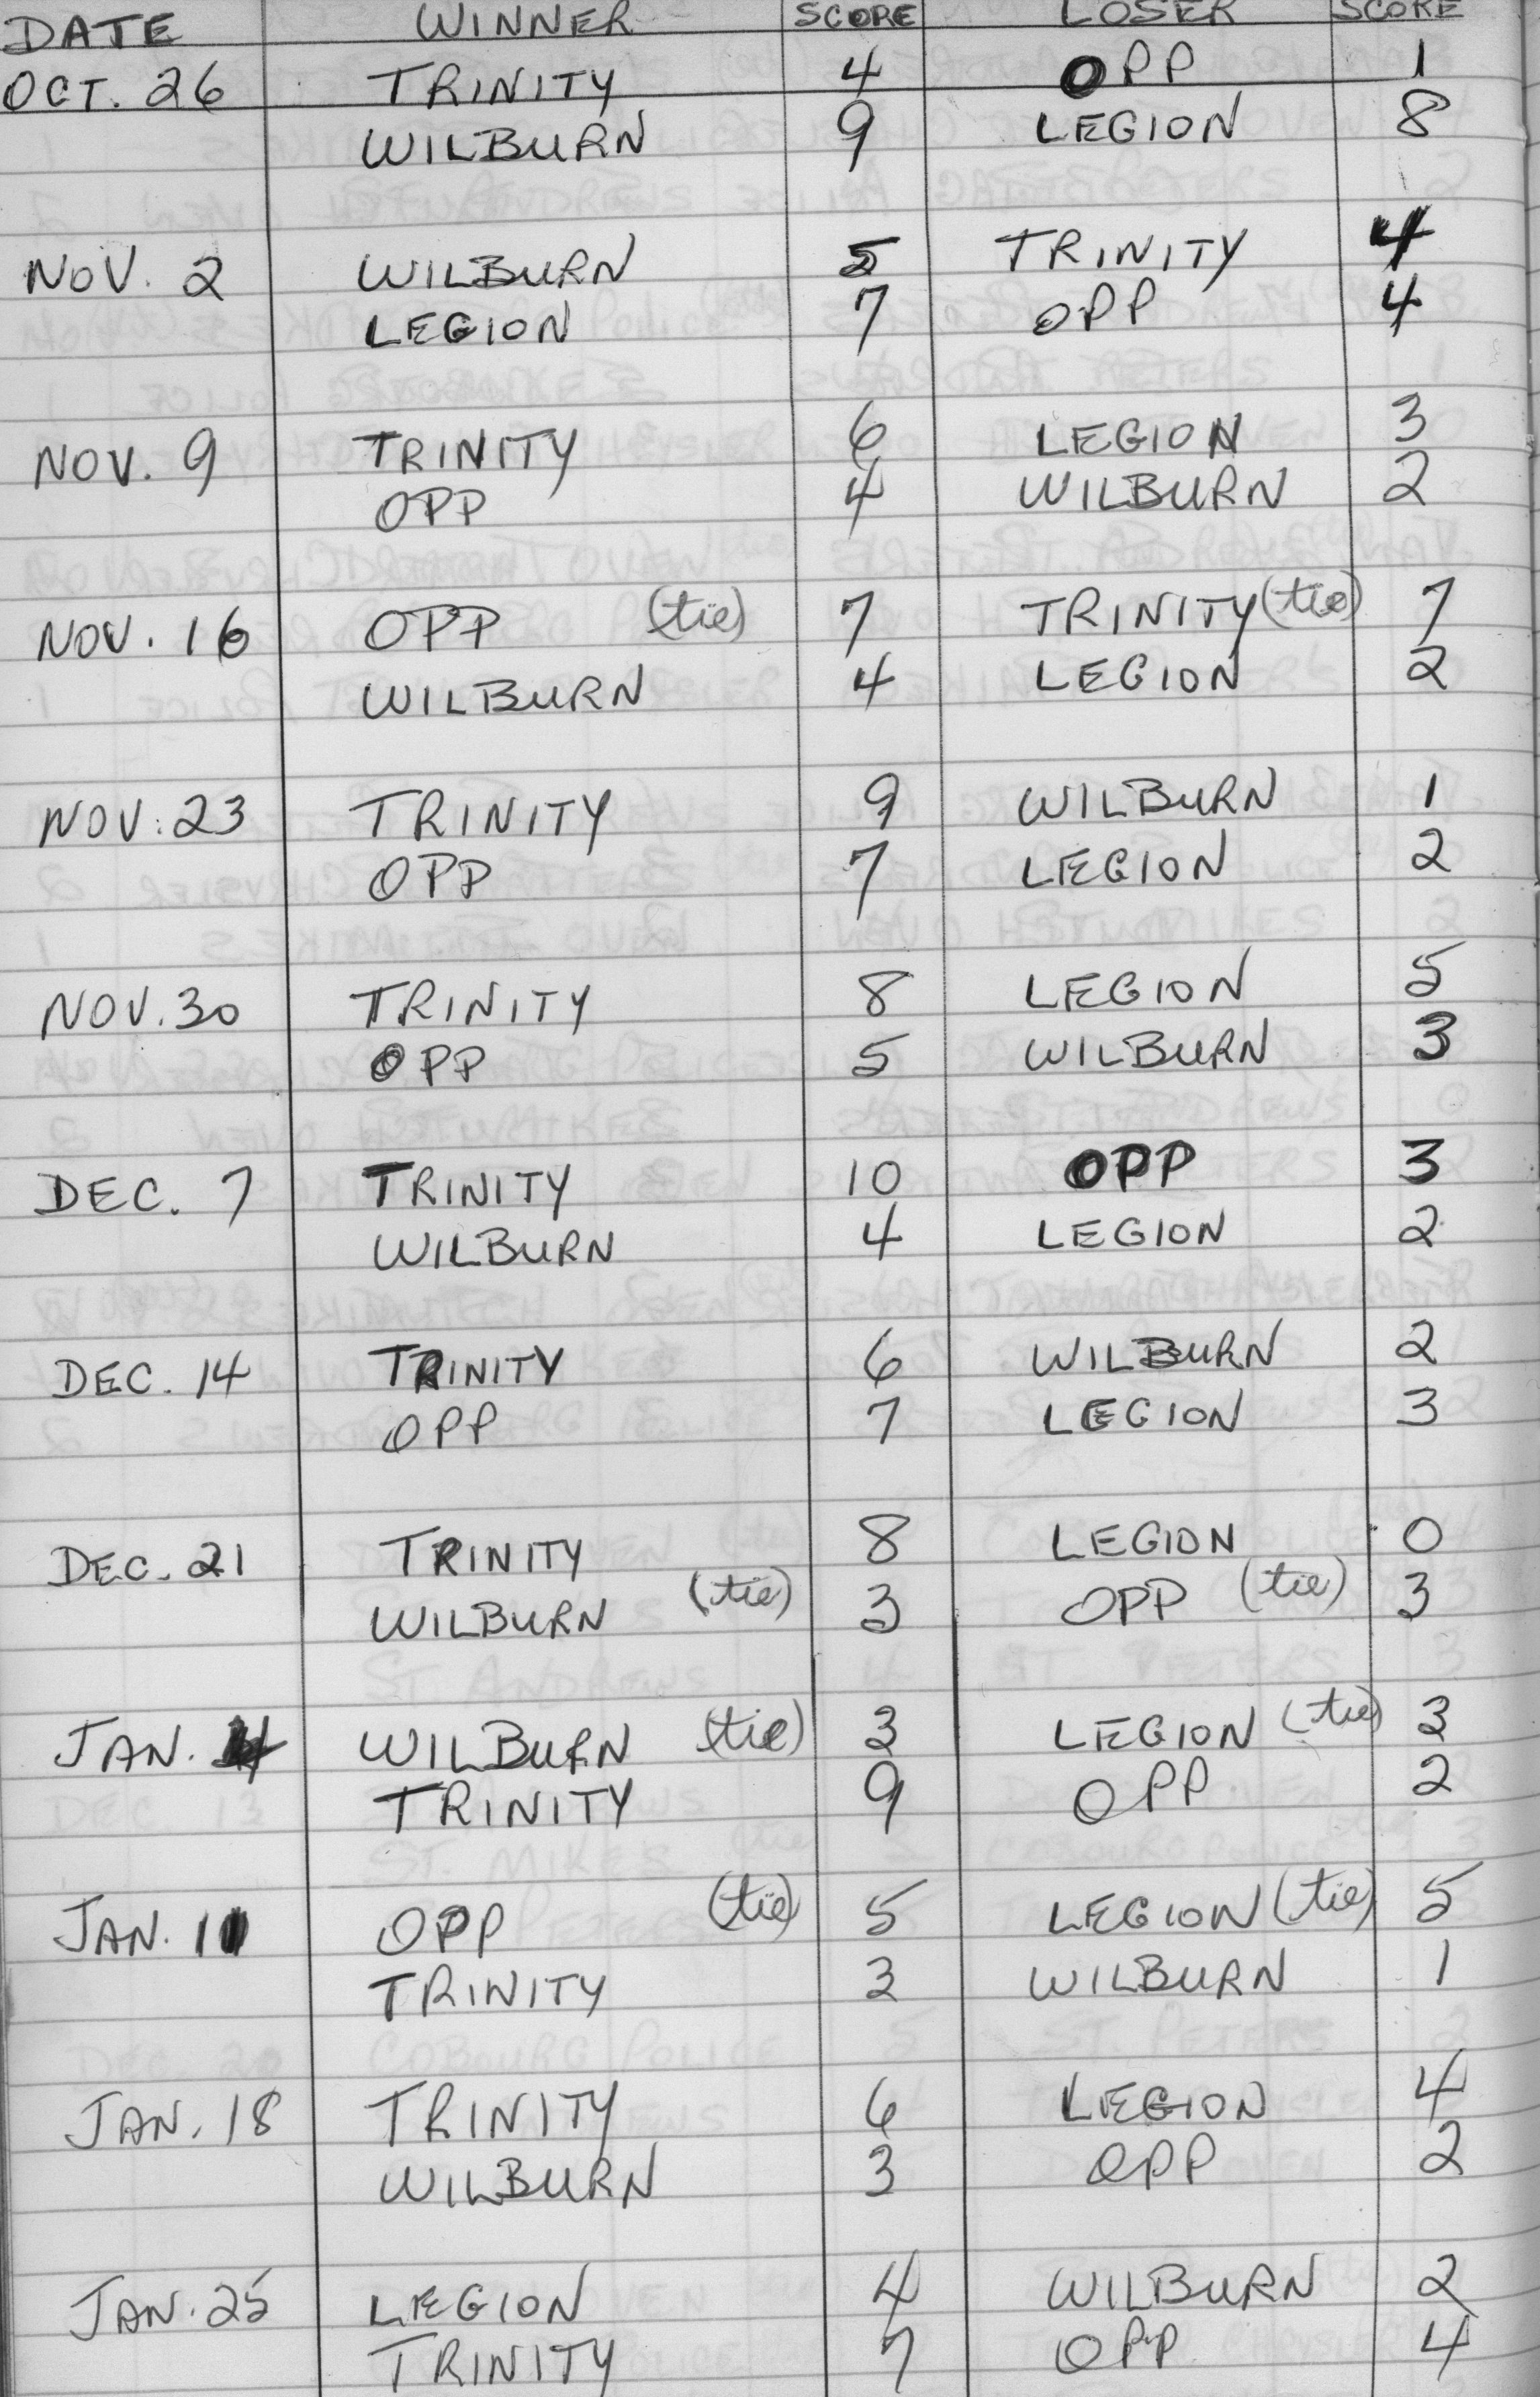 DATE WINNER SCORE LOSER SCORE
OCT. 26 TRINITY 4 OPP 1
WILBURN 9 LEGION 8
NOV. 2 WILBURN 5 TRINITY 4
LEGION 7 OPP 4
NOV. 9 TRINITY 6 LEGION 3
OPP 4 WILBURN 2
NOV. 16 OPP (tie) 7 TRINITY (tie) 7
WILBURN 4 LEGION 2
NOV. 23 TRINITY 9 WILBURN 1
OPP 7 LEGION 2
NOV. 30 TRINITY 8 LEGION 5
OPP 5 WILBURN 3
DEC. 7 TRINITY 10 OPP 3
WILBURN 4 LEGION 2
DEC. 14 TRINITY 6 WILBURN 2
OPP 7 LEGION 3
DEC. 21 TRINITY 8 LEGION 0
WILBURN (tie) 3 OPP (tie) 3
JAN. 4 WILBURN (tie) 3 LEGION (tie) 3
TRINITY 9 OPP 2
JAN. 11 OPP (tie) 5 LEGION (tie) 5
TRINITY 3 WILBURN 1
JAN. 18 TRINITY 6 LEGION 4
WILBURN 3 OPP 2
JAN. 25 LEGION 4 WILBURN 2
TRINITY 7 OPP 4